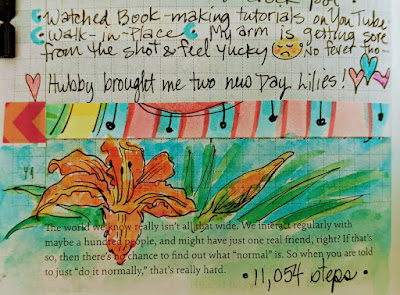 Watched Book-making tutorials on YouTube
Walk-in-Place My arm is getting sore
from the shot & feel yucky No fever tho-
Hubby brought me two new Day Lilies!
The world we know really isn't all that wide. We interact regularly with
maybe a hundred people, and might have just one real friend, right? If that's
so, then there's no chance to find out what "normal" is. So when you are told
to just "do it normally," that's really hard.
• 11,054 steps •